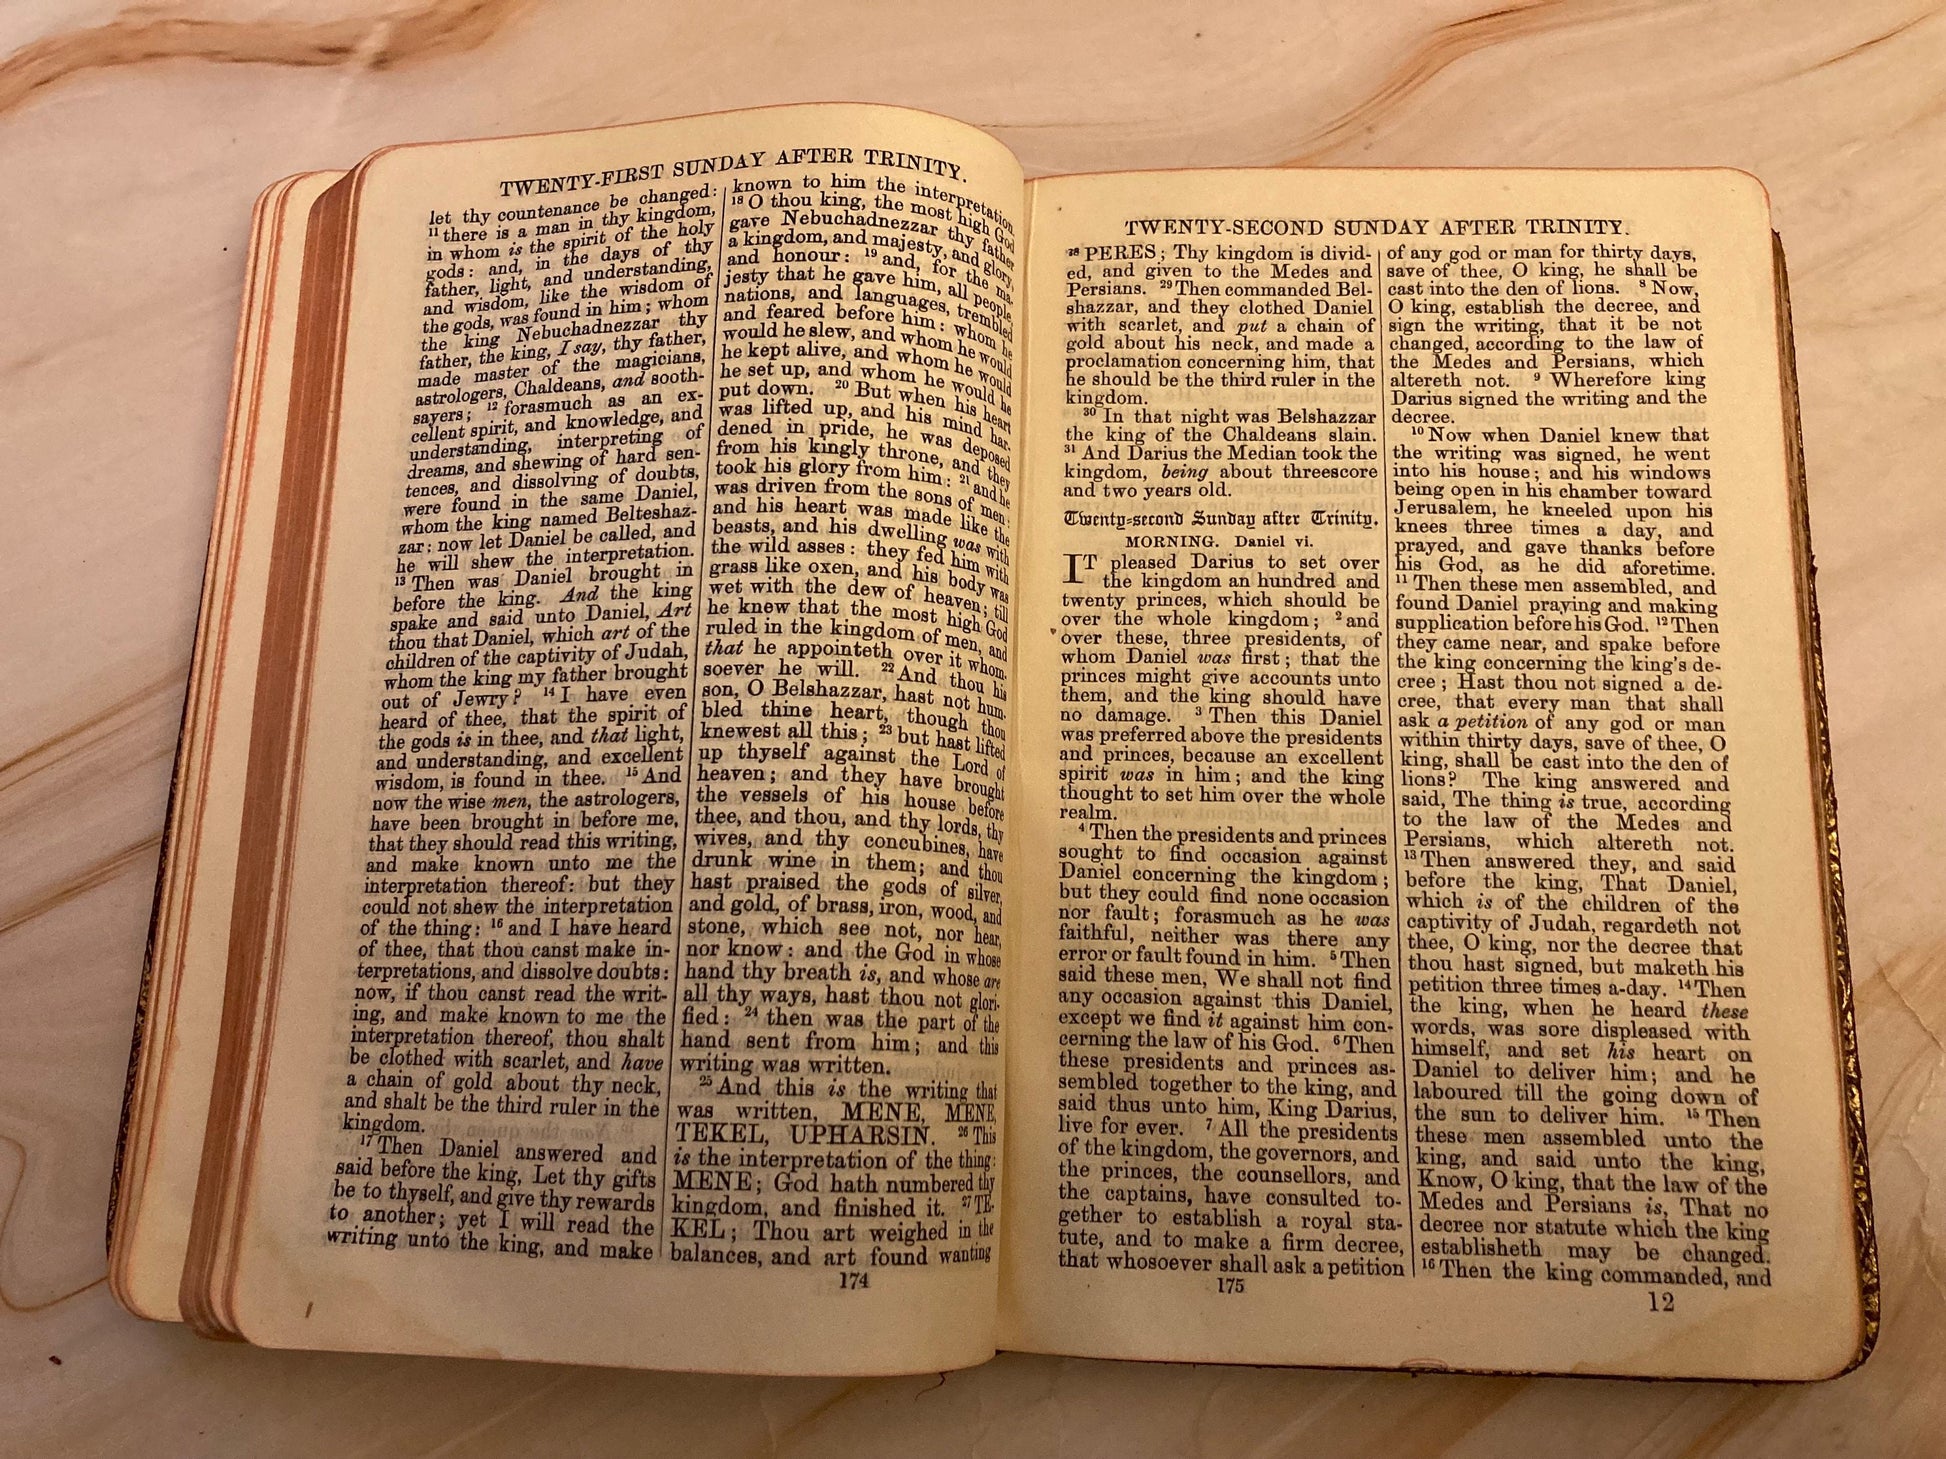 TWENTY-FIRST SUNDAY AFTER TRINITY.
let thy countenance be changed:
11 there is a man in thy kingdom,
in whom is the spirit of the holy
gods: and, in the days of thy
father, light, and understanding,
and wisdom, like the wisdom of
the gods, was found in him; whom
the king Nebuchadnezzar thy
father, the king, I say, thy father,
made master of the magicians,
astrologers, Chaldeans, and sooth-
sayers; 12 forasmuch as an ex-
cellent spirit, and knowledge, and
understanding, interpreting of
dreams, and shewing of hard sen-
tences, and dissolving of doubts,
were found in the same Daniel,
whom the king named Belteshaz-
zar: now let Daniel be called, and
he will shew the interpretation.
13 Then was Daniel brought in
before the king. And the king
spake and said unto Daniel, Art
thou that Daniel, which art of the
children of the captivity of Judah,
whom the king my father brought
out of Jewry? 14 I have even
heard of thee, that the spirit of
the gods is in thee, and that light,
and understanding, and excellent
wisdom, is found in thee. 15 And
now the wise men, the astrologers,
have been brought in before me,
that they should read this writing,
and make known unto me the
interpretation thereof: but they
could not shew the interpretation
of the thing: 16 and I have heard
of thee, that thou canst make in-
terpretations, and dissolve doubts:
now, if thou canst read the writ-
ing, and make known to me the
interpretation thereof, thou shalt
be clothed with scarlet, and have
a chain of gold about thy neck,
and shalt be the third ruler in the
kingdom.
17 Then Daniel answered and
said before the king, Let thy gifts
be to thyself, and give thy rewards
to another; yet I will read the
writing unto the king, and make
known to him the interpretation.
18 O thou king, the most high God
gave Nebuchadnezzar thy father
a kingdom, and majesty, and glory,
and honour: 19 and, for the ma-
jesty that he gave him, all people,
nations, and languages, trembled
and feared before him: whom he
would he slew, and whom he would
he kept alive, and whom he would
he set up, and whom he would he
put down. 20 But when his heart
was lifted up, and his mind har-
dened in pride, he was deposed
from his kingly throne, and they
took his glory from him: 21 and he
was driven from the sons of men;
and his heart was made like the
beasts, and his dwelling was with
the wild asses: they fed him with
grass like oxen, and his body was
wet with the dew of heaven; till
he knew that the most high God
ruled in the kingdom of men, and
that he appointeth over it whom-
soever he will. 22 And thou his
son, O Belshazzar, hast not hum-
bled thine heart, though thou
knewest all this; 23 but hast lifted
up thyself against the Lord of
heaven; and they have brought
the vessels of his house before
thee, and thou, and thy lords, thy
wives, and thy concubines, have
drunk wine in them; and thou
hast praised the gods of silver,
and gold, of brass, iron, wood, and
stone, which see not, nor hear,
nor know: and the God in whose
hand thy breath is, and whose are
all thy ways, hast thou not glori-
fied: 24 then was the part of the
hand sent from him; and this
writing was written.
25 And this is the writing that
was written, MENE, MENE,
TEKEL, UPHARSIN. 26 This
is the interpretation of the thing:
MENE; God hath numbered thy
kingdom, and finished it. 27 TE-
KEL; Thou art weighed in the
balances, and art found wanting
174
TWENTY-SECOND SUNDAY AFTER TRINITY.
28 PERES; Thy kingdom is divid-
ed, and given to the Medes and
Persians. 29 Then commanded Bel-
shazzar, and they clothed Daniel
with scarlet, and put a chain of
gold about his neck, and made a
proclamation concerning him, that
he should be the third ruler in the
kingdom.
30 In that night was Belshazzar
the king of the Chaldeans slain.
31 And Darius the Median took the
kingdom, being about threescore
and two years old.
Twenty-second Sunday after Trinity.
MORNING. Daniel vi.
IT pleased Darius to set over
the kingdom an hundred and
twenty princes, which should be
over the whole kingdom; 2 and
over these, three presidents, of
whom Daniel was first; that the
princes might give accounts unto
them, and the king should have
no damage. 3 Then this Daniel
was preferred above the presidents
and princes, because an excellent
spirit was in him; and the king
thought to set him over the whole
realm.
4 Then the presidents and princes
sought to find occasion against
Daniel concerning the kingdom;
but they could find none occasion
nor fault; forasmuch as he was
faithful, neither was there any
error or fault found in him. 5 Then
said these men, We shall not find
any occasion against this Daniel,
except we find it against him con-
cerning the law of his God. 6 Then
these presidents and princes as-
sembled together to the king, and
said thus unto him, King Darius,
live for ever. 7 All the presidents
of the kingdom, the governors, and
the princes, the counsellors, and
the captains, have consulted to-
gether to establish a royal sta-
tute, and to make a firm decree,
that whosoever shall ask a petition
of any god or man for thirty days,
save of thee, O king, he shall be
cast into the den of lions. 8 Now,
O king, establish the decree, and
sign the writing, that it be not
changed, according to the law of
the Medes and Persians, which
altereth not. 9 Wherefore king
Darius signed the writing and the
decree.
10 Now when Daniel knew that
the writing was signed, he went
into his house; and his windows
being open in his chamber toward
Jerusalem, he kneeled upon his
knees three times a day, and
prayed, and gave thanks before
his God, as he did aforetime.
11 Then these men assembled, and
found Daniel praying and making
supplication before his God. 12 Then
they came near, and spake before
the king concerning the king's de-
cree; Hast thou not signed a de-
cree, that every man that shall
ask a petition of any god or man
within thirty days, save of thee, O
king, shall be cast into the den of
lions? The king answered and
said, The thing is true, according
to the law of the Medes and
Persians, which altereth not.
13 Then answered they, and said
before the king, That Daniel,
which is of the children of the
captivity of Judah, regardeth not
thee, O king, nor the decree that
thou hast signed, but maketh his
petition three times a-day. 14 Then
the king, when he heard these
words, was sore displeased with
himself, and set his heart on
Daniel to deliver him; and he
laboured till the going down of
the sun to deliver him. 15 Then
these men assembled unto the
king, and said unto the king,
Know, O king, that the law of the
Medes and Persians is, That no
decree nor statute which the king
establisheth may be changed.
16 Then the king commanded, and
175
12